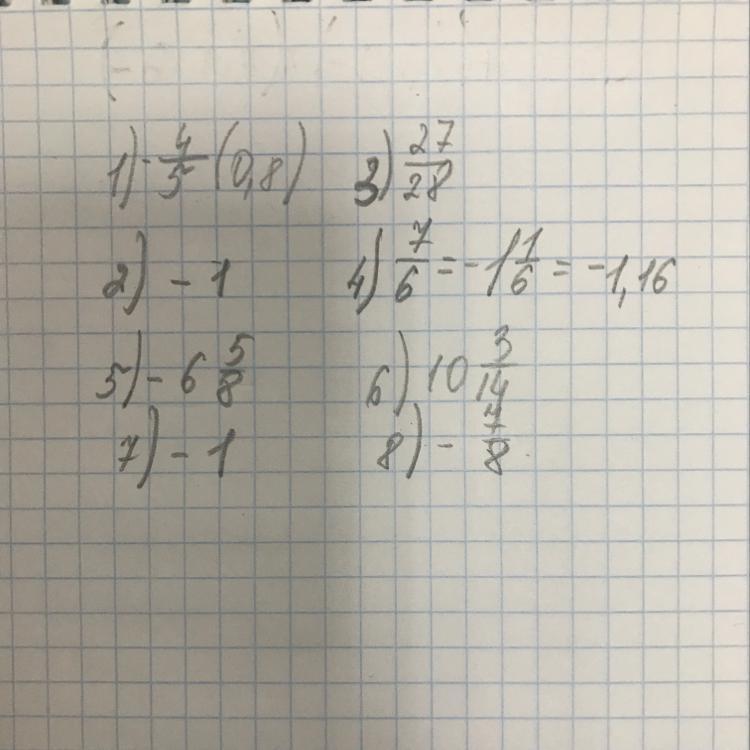 1) -4/5 (0,8) 3) 27/28
2) - 1 4) 7/6 = -1 1/6 = -1,16
5) - 6 5/8 6) 10 3/14
7) - 1 8) - 7/8